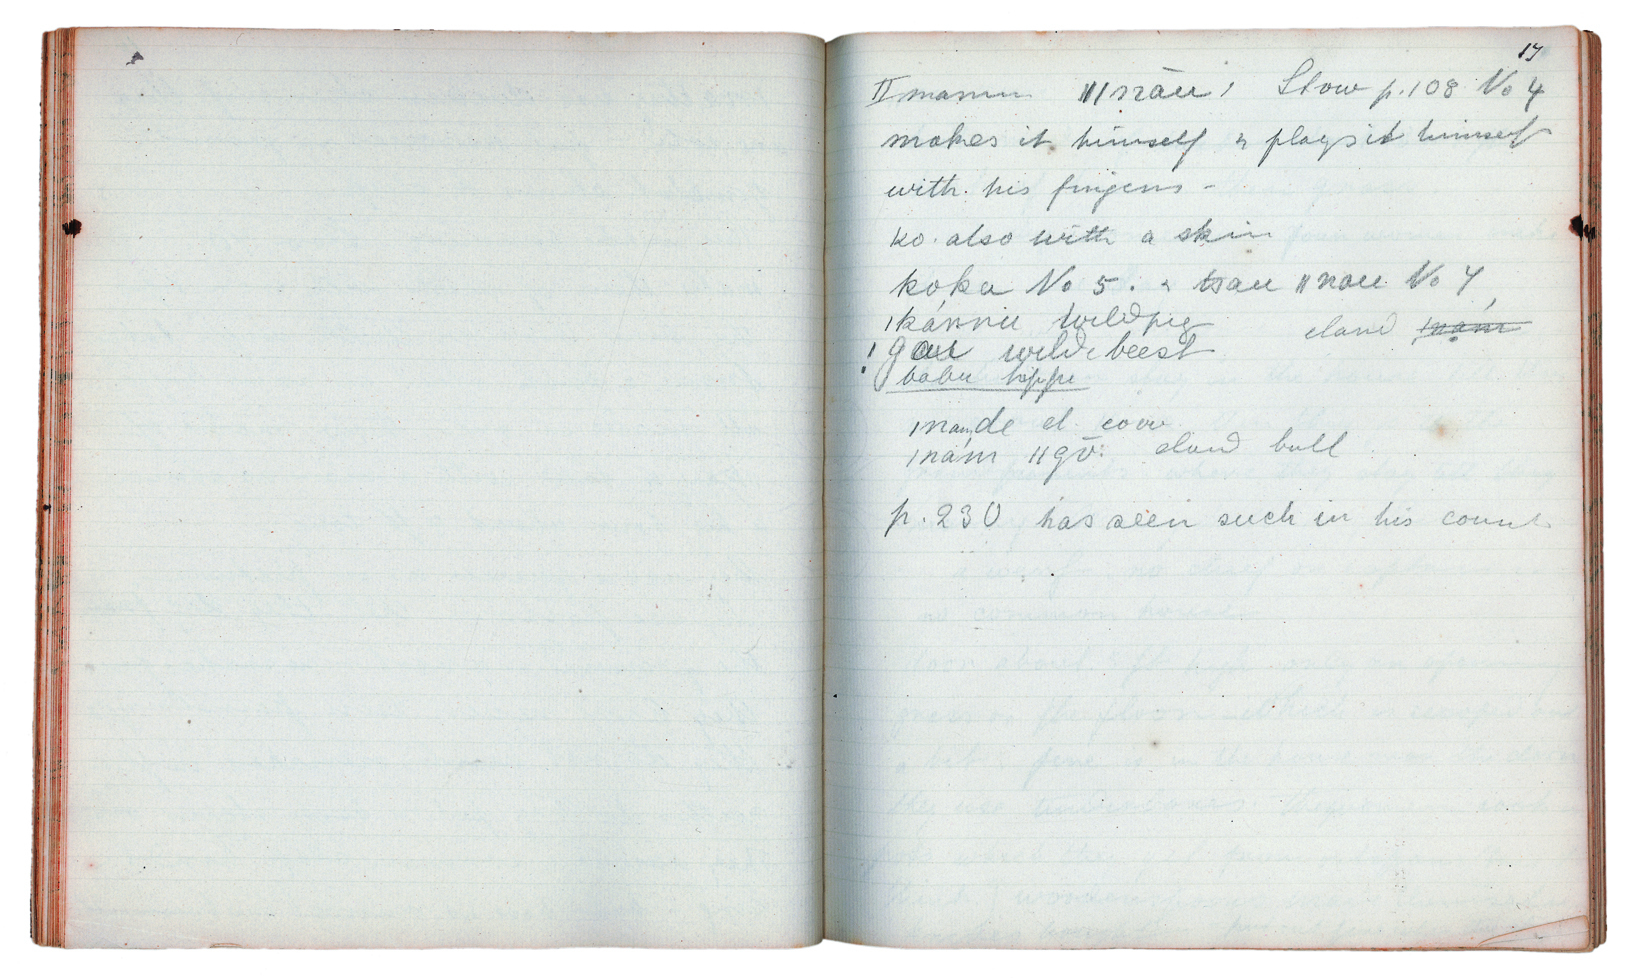 17
ǁmamu ǁǀnāu ' Stow p. 108 No 4
makes it himself & plays it himself
with his fingers -
ko. also with a skin
koka No 5. & tsau ǁnau No 7
ǀkánnu wildpig
eland ǀnám
!gau wildebeest
babu hippo
ǀnamde el. cow
ǀnám ǁgō: eland bull
p. 230 has seen such in his count